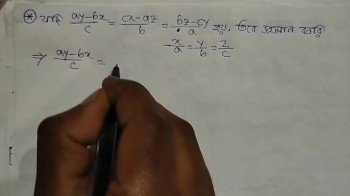 * যদি (ay-bx)/c = (cx-az)/b = (bz-cy)/a হয়, তবে প্রমাণ করি
x/a = y/b = z/c
⇒ (ay-bx)/c =